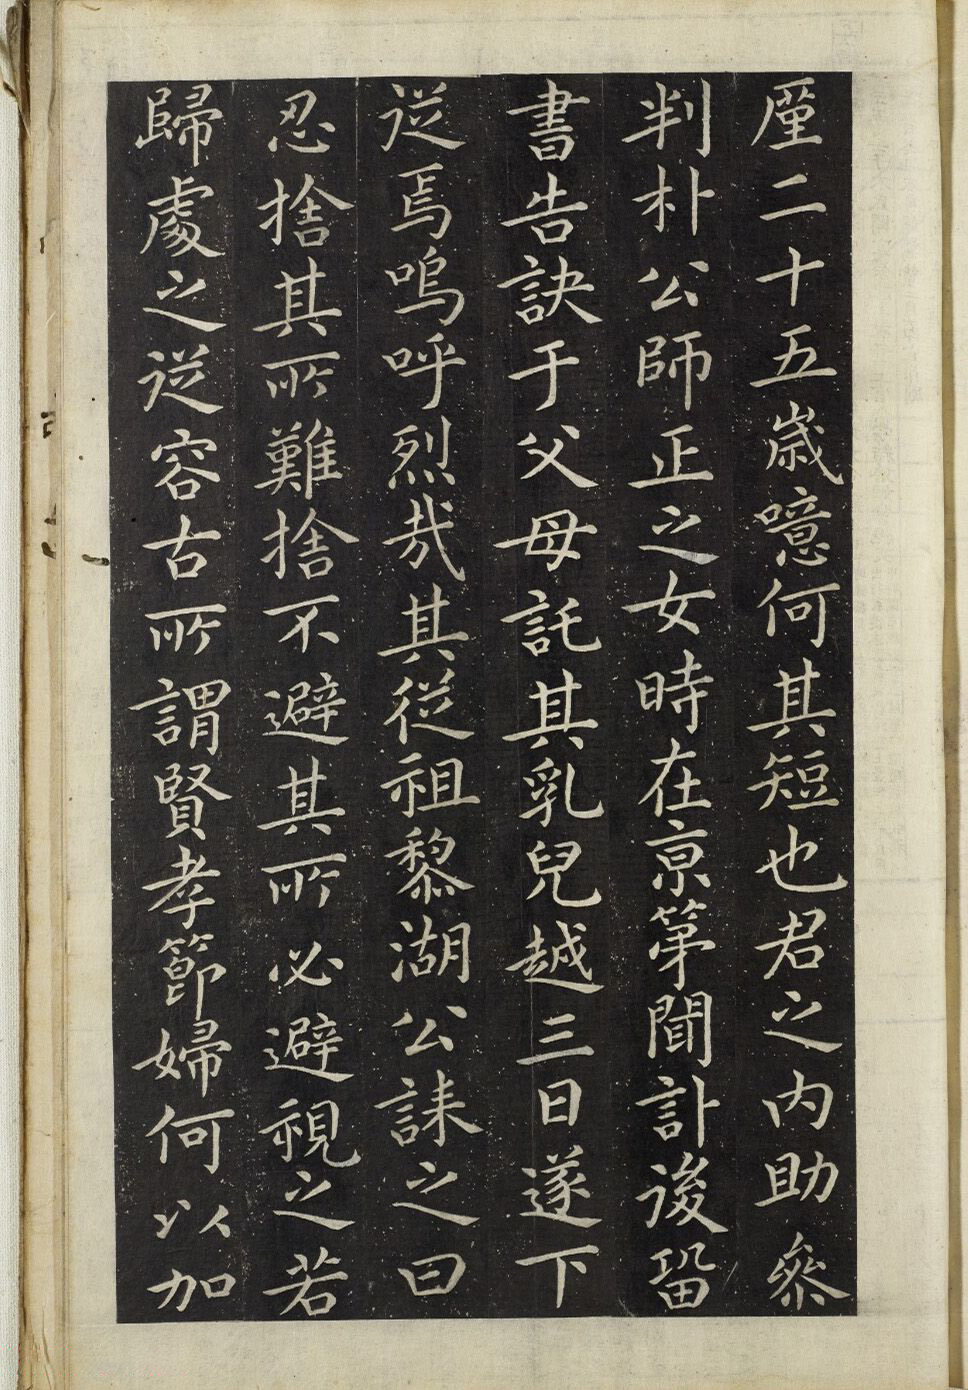 厪二十五歲噫何其短也君之內助參
判朴公師正之女時在京第聞訃後留
書告訣于父母託其乳兒越三日遂下
從焉嗚呼烈哉其從祖黎湖公誄之曰
忍捨其所難捨不避其所必避視之若
歸處之從容古所謂賢孝節婦何以加